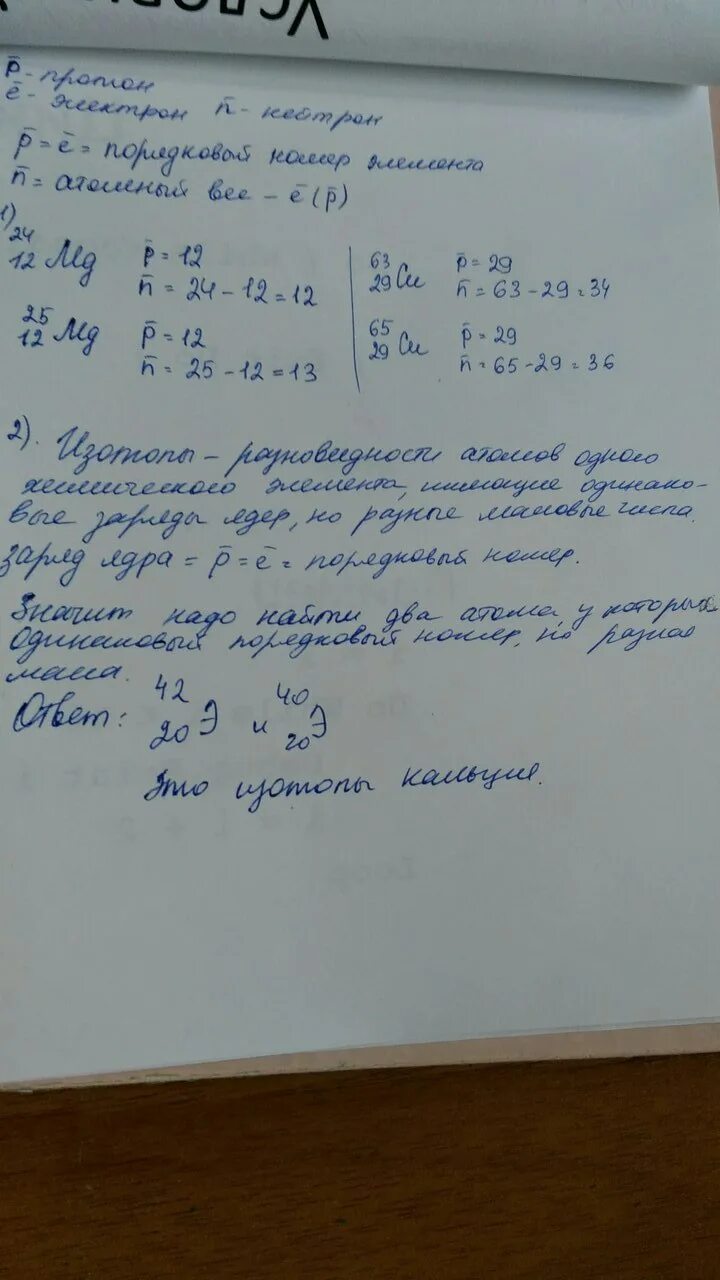 p̄ - протон
ē - электрон n̄ - нейтрон
p̄ = ē = порядковый номер элемента
n̄ = атомный вес - ē (p̄)
1)
24
12 Mg p̄ = 12
n̄ = 24 - 12 = 12
25
12 Mg p̄ = 12
n̄ = 25 - 12 = 13
63
29 Cu p̄ = 29
n̄ = 63 - 29 = 34
65
29 Cu p̄ = 29
n̄ = 65 - 29 = 36
2). Изотопы - разновидности атомов одного
химического элемента, имеющие одинако-
вые заряды ядер, но разные массовые числа.
Заряд ядра = p̄ = ē = порядковый номер.
Значит надо найти два атома, у которых
одинаковый порядковый номер, но разная
масса.
Ответ: 42 20 Э и 40 20 Э
Это изотопы кальция.